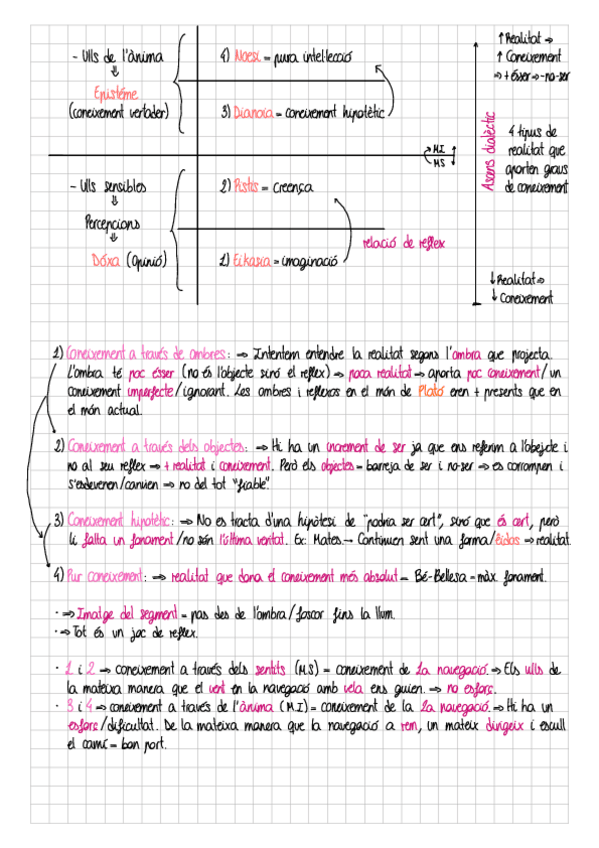 - Ulls de l'ànima
Epistéme
(coneixement vertader)
4) Noesi = pura intel·lecció
3) Dianoia = coneixement hipotètic
M.I
M.S
- Ulls sensibles
Percepcions
Dóxa (Opinió)
2) Pistis = creença
1) Eikasia = imaginació
relació de reflex
Ascens dialèctic
↑ Realitat ⇒
↑ Coneixement
⇒ + ésser ⇒ - no-ser
4 tipus de
realitat que
aporten graus
de coneixement
↓ Realitat ⇒
↓ Coneixement
1) Coneixement a través de ombres: ⇒ Intentem entendre la realitat segons l'ombra que projecta.
L'ombra té poc ésser (no és l'objecte sinó el reflex) ⇒ poca realitat ⇒ aporta poc coneixement/un
coneixement imperfecte/ignorant. Les ombres i reflexos en el món de Plató eren + presents que en
el món actual.
2) Coneixement a través dels objectes: ⇒ Hi ha un increment de ser ja que ens referim a l'obejcte i
no al seu reflex ⇒ + realitat i coneixement. Però els objectes = barreja de ser i no-ser ⇒ es corrompen i
s'esdeveren/canvien ⇒ no del tot "fiable".
3) Coneixement hipotètic: ⇒ No es tracta d'una hipòtesi de "podria ser cert", sinó que és cert, però
li falta un fonament/no són l'última veritat. Ex: Mates → Continuen sent una forma/êidos ⇒ realitat
4) Pur coneixement: ⇒ realitat que dona el coneixement més absolut = Bé-Bellesa = màx. fonament.
· ⇒ Imatge del segment = pas des de l'ombra/foscor fins la llum.
· ⇒ Tot és un joc de reflex.
· 1 i 2 ⇒ coneixement a través dels sentits (M.S) = coneixement de 1a navegació. ⇒ Els ulls de
la mateixa manera que el vent en la navegació amb vela ens guien. ⇒ no esforç.
· 3 i 4 ⇒ coneixement a través de l'ànima (M.I) = coneixement de la 2a navegació. ⇒ Hi ha un
esforç/dificultat. De la mateixa manera que la navegació a rem, un mateix dirigeix i escull
el camí = bon port.